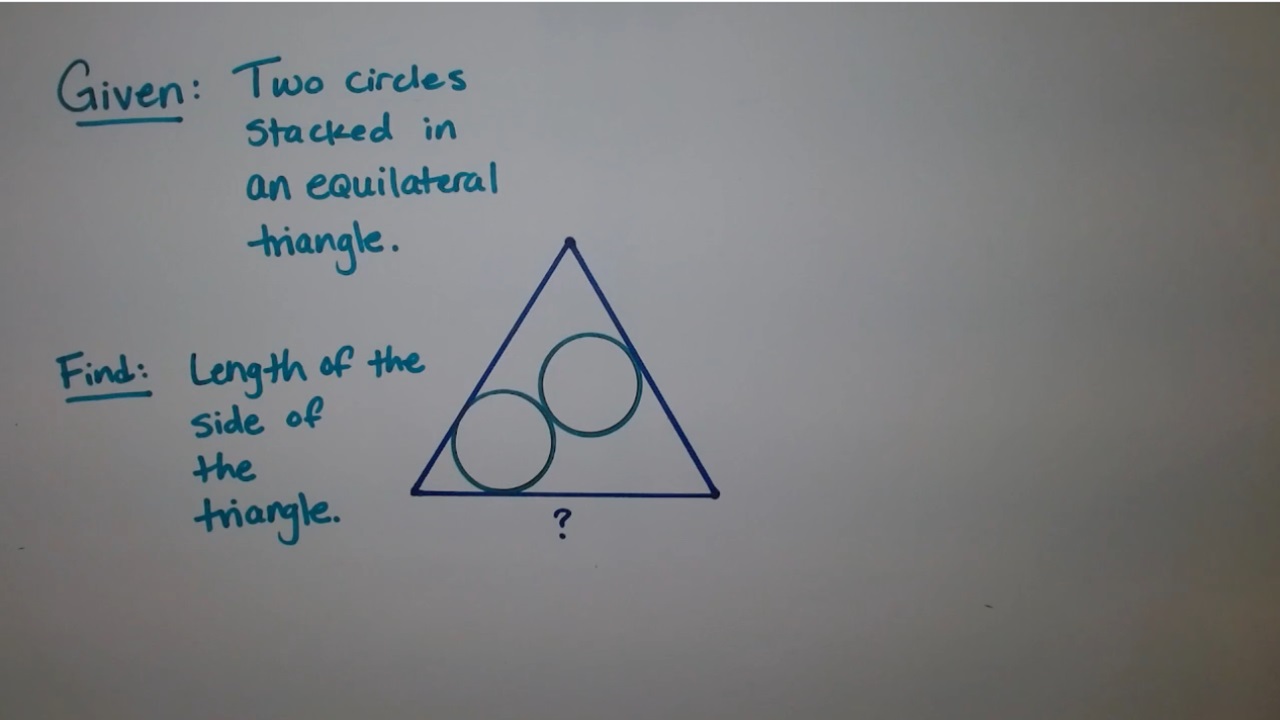 Given: Two circles
stacked in
an equilateral
triangle.
Find: Length of the
side of
the
triangle.
?